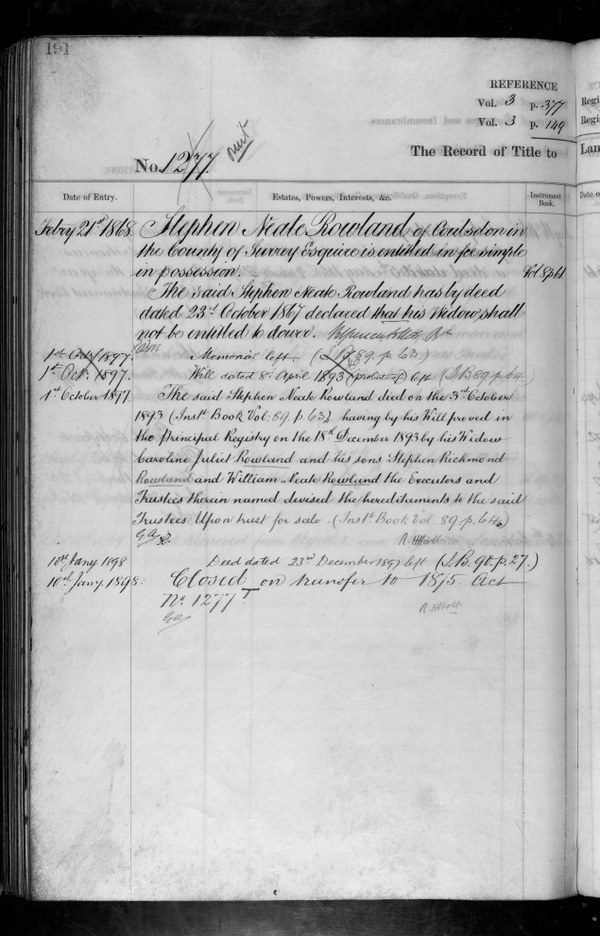 191
REFERENCE
Vol. 3 p. 377
Vol. 3 p. 149
No. 1277.
The Record of Title to
Date of Entry.
Estates, Powers, Interests, &c.
Instrument Book.
Febry 21st 1868. Stephen Neate Rowland of Coulsdon in
the County of Surrey Esquire is entitled in fee simple
in possession. Vol 8 p 61
The said Stephen Neate Rowland has by deed
dated 23rd October 1867 declared that his Widow shall
not be entitled to dower.
1st Octr 1897. Memorial left (I.B. 89. p. 63.)
1st Oct. 1897. Will dated 8th April 1893 (probate) left (I.B 89 p 64.
1st October 1897 The said Stephen Neate Rowland died on the 3rd October
1893 (Instt Book Vol: 89. p. 63) having by his Will proved in
the Principal Registry on the 18th December 1893 by his Widow
Caroline Juliet Rowland and his sons Stephen Rickmond
Rowland and William Neate Rowland the Executors and
Trustees therein named devised the hereditaments to the said
Trustees Upon trust for sale (Instt Book Vol: 89 p. 64.)
R. H. Holt
10th Jany 1898 Deed dated 23rd December 1897 left (I.B. 90. p. 27.)
10th Jany 1898. Closed on transfer to 1875 Act
No. 1277T
R. H. Holt
Regi
Regi
Lan
Date o